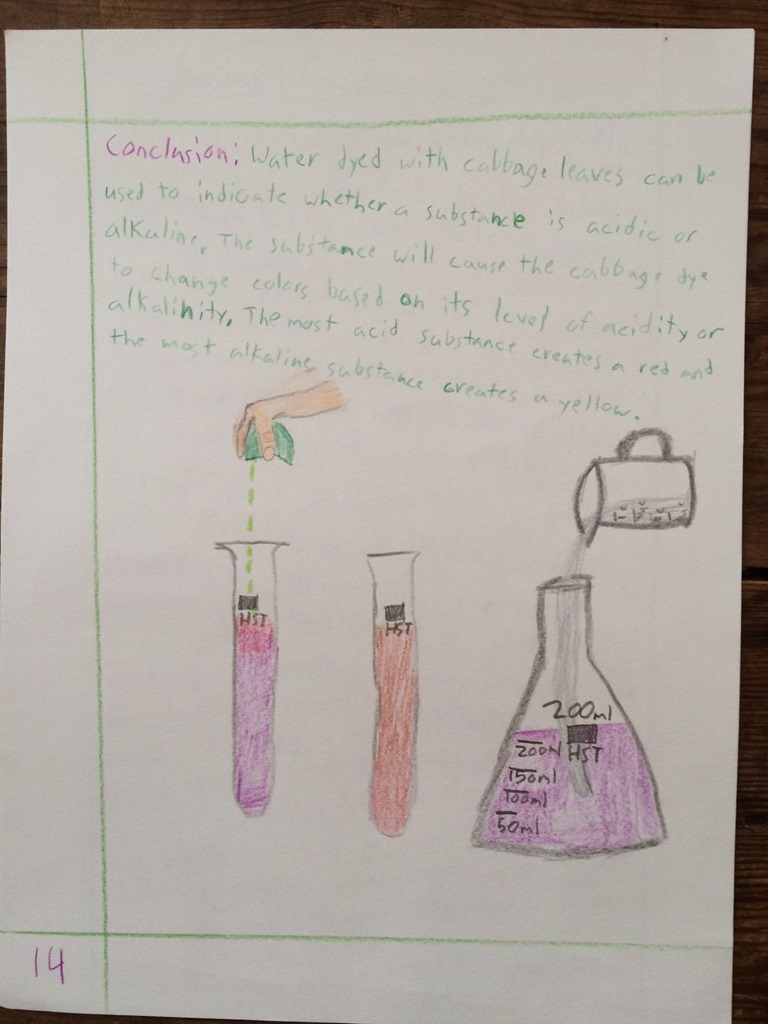 Conclusion: Water dyed with cabbage leaves can be
used to indicate whether a substance is acidic or
alkaline. The substance will cause the cabbage dye
to change colors based on its level of acidity or
alkalinity. The most acid substance creates a red and
the most alkaline substance creates a yellow.
HST
HST
200ml
HST
200
150ml
100ml
50ml
14